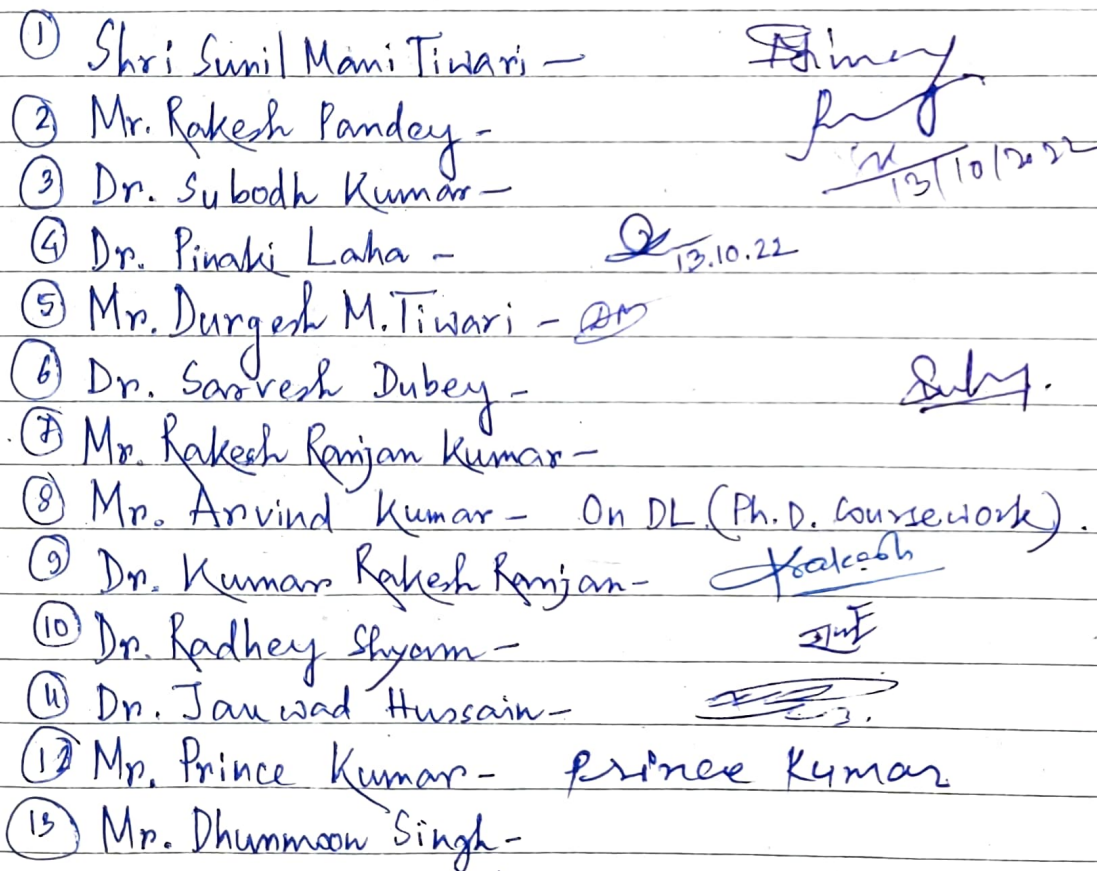 ① Shri Sunil Mani Tiwari -
② Mr. Rakesh Pandey -
③ Dr. Subodh Kumar - 13/10/2022
④ Dr. Pinaki Laha - 13.10.22
⑤ Mr. Durgesh M. Tiwari - DM
⑥ Dr. Sarvesh Dubey -
⑦ Mr. Rakesh Ranjan Kumar -
⑧ Mr. Arvind Kumar - On DL (Ph.D. Coursework).
⑨ Dr. Kumar Rakesh Ranjan - Krakesh
⑩ Dr. Radhey Shyam -
⑪ Dr. Jauwad Hussain -
⑫ Mr. Prince Kumar - Prince Kumar
⑬ Mr. Dhunmoon Singh -